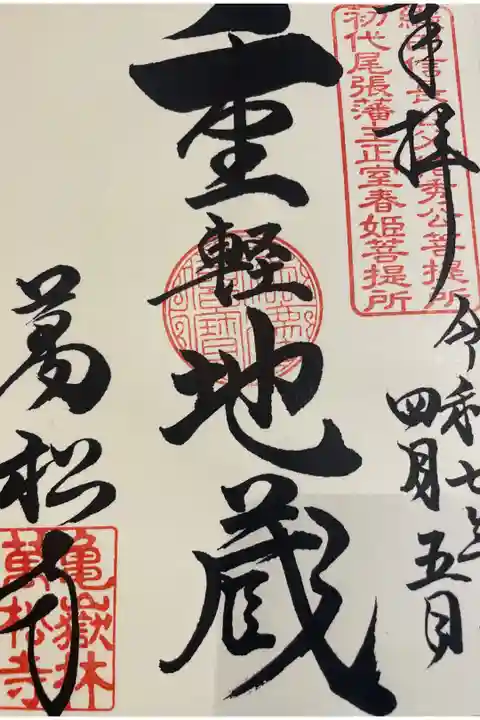 奉拝
令和七年
四月五日
織田信長公父信秀公菩提所
初代尾張藩主正室春姫菩提所
重軽地蔵
萬松寺
亀嶽林
萬松寺